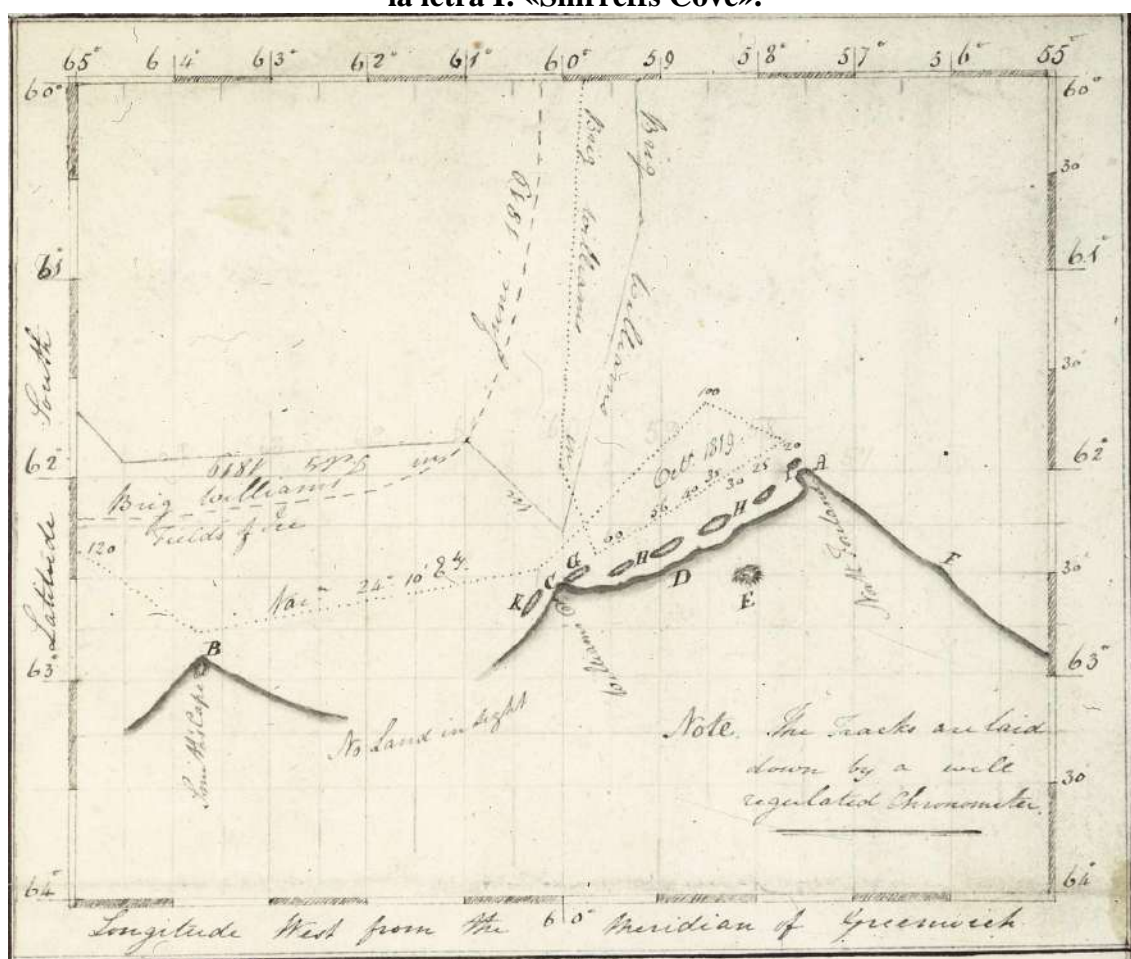 la letra I: «Shirreffs Cove».
65° 64° 63° 62° 61° 60° 59 58° 57° 56° 55°
60° 60°
30
61 61°
30
62° 62°
30
63° 63°
30
64° 64
Latitude South
June 1819
Brig Williams
Brig Williams
in Feby 1819
Brig Williams
Fields of ice
120
100
Octr 1819
20
60 56 40 35 30 25
Varn 24° 10' Ely
I A
H
H
G
C
K
D
E
F
B
North Foreland
Williams
Smith's Cape
No Land in sight
Note. The Tracks are laid
down by a well
regulated Chronometer.
Longitude West from the 60° Meridian of Greenwich